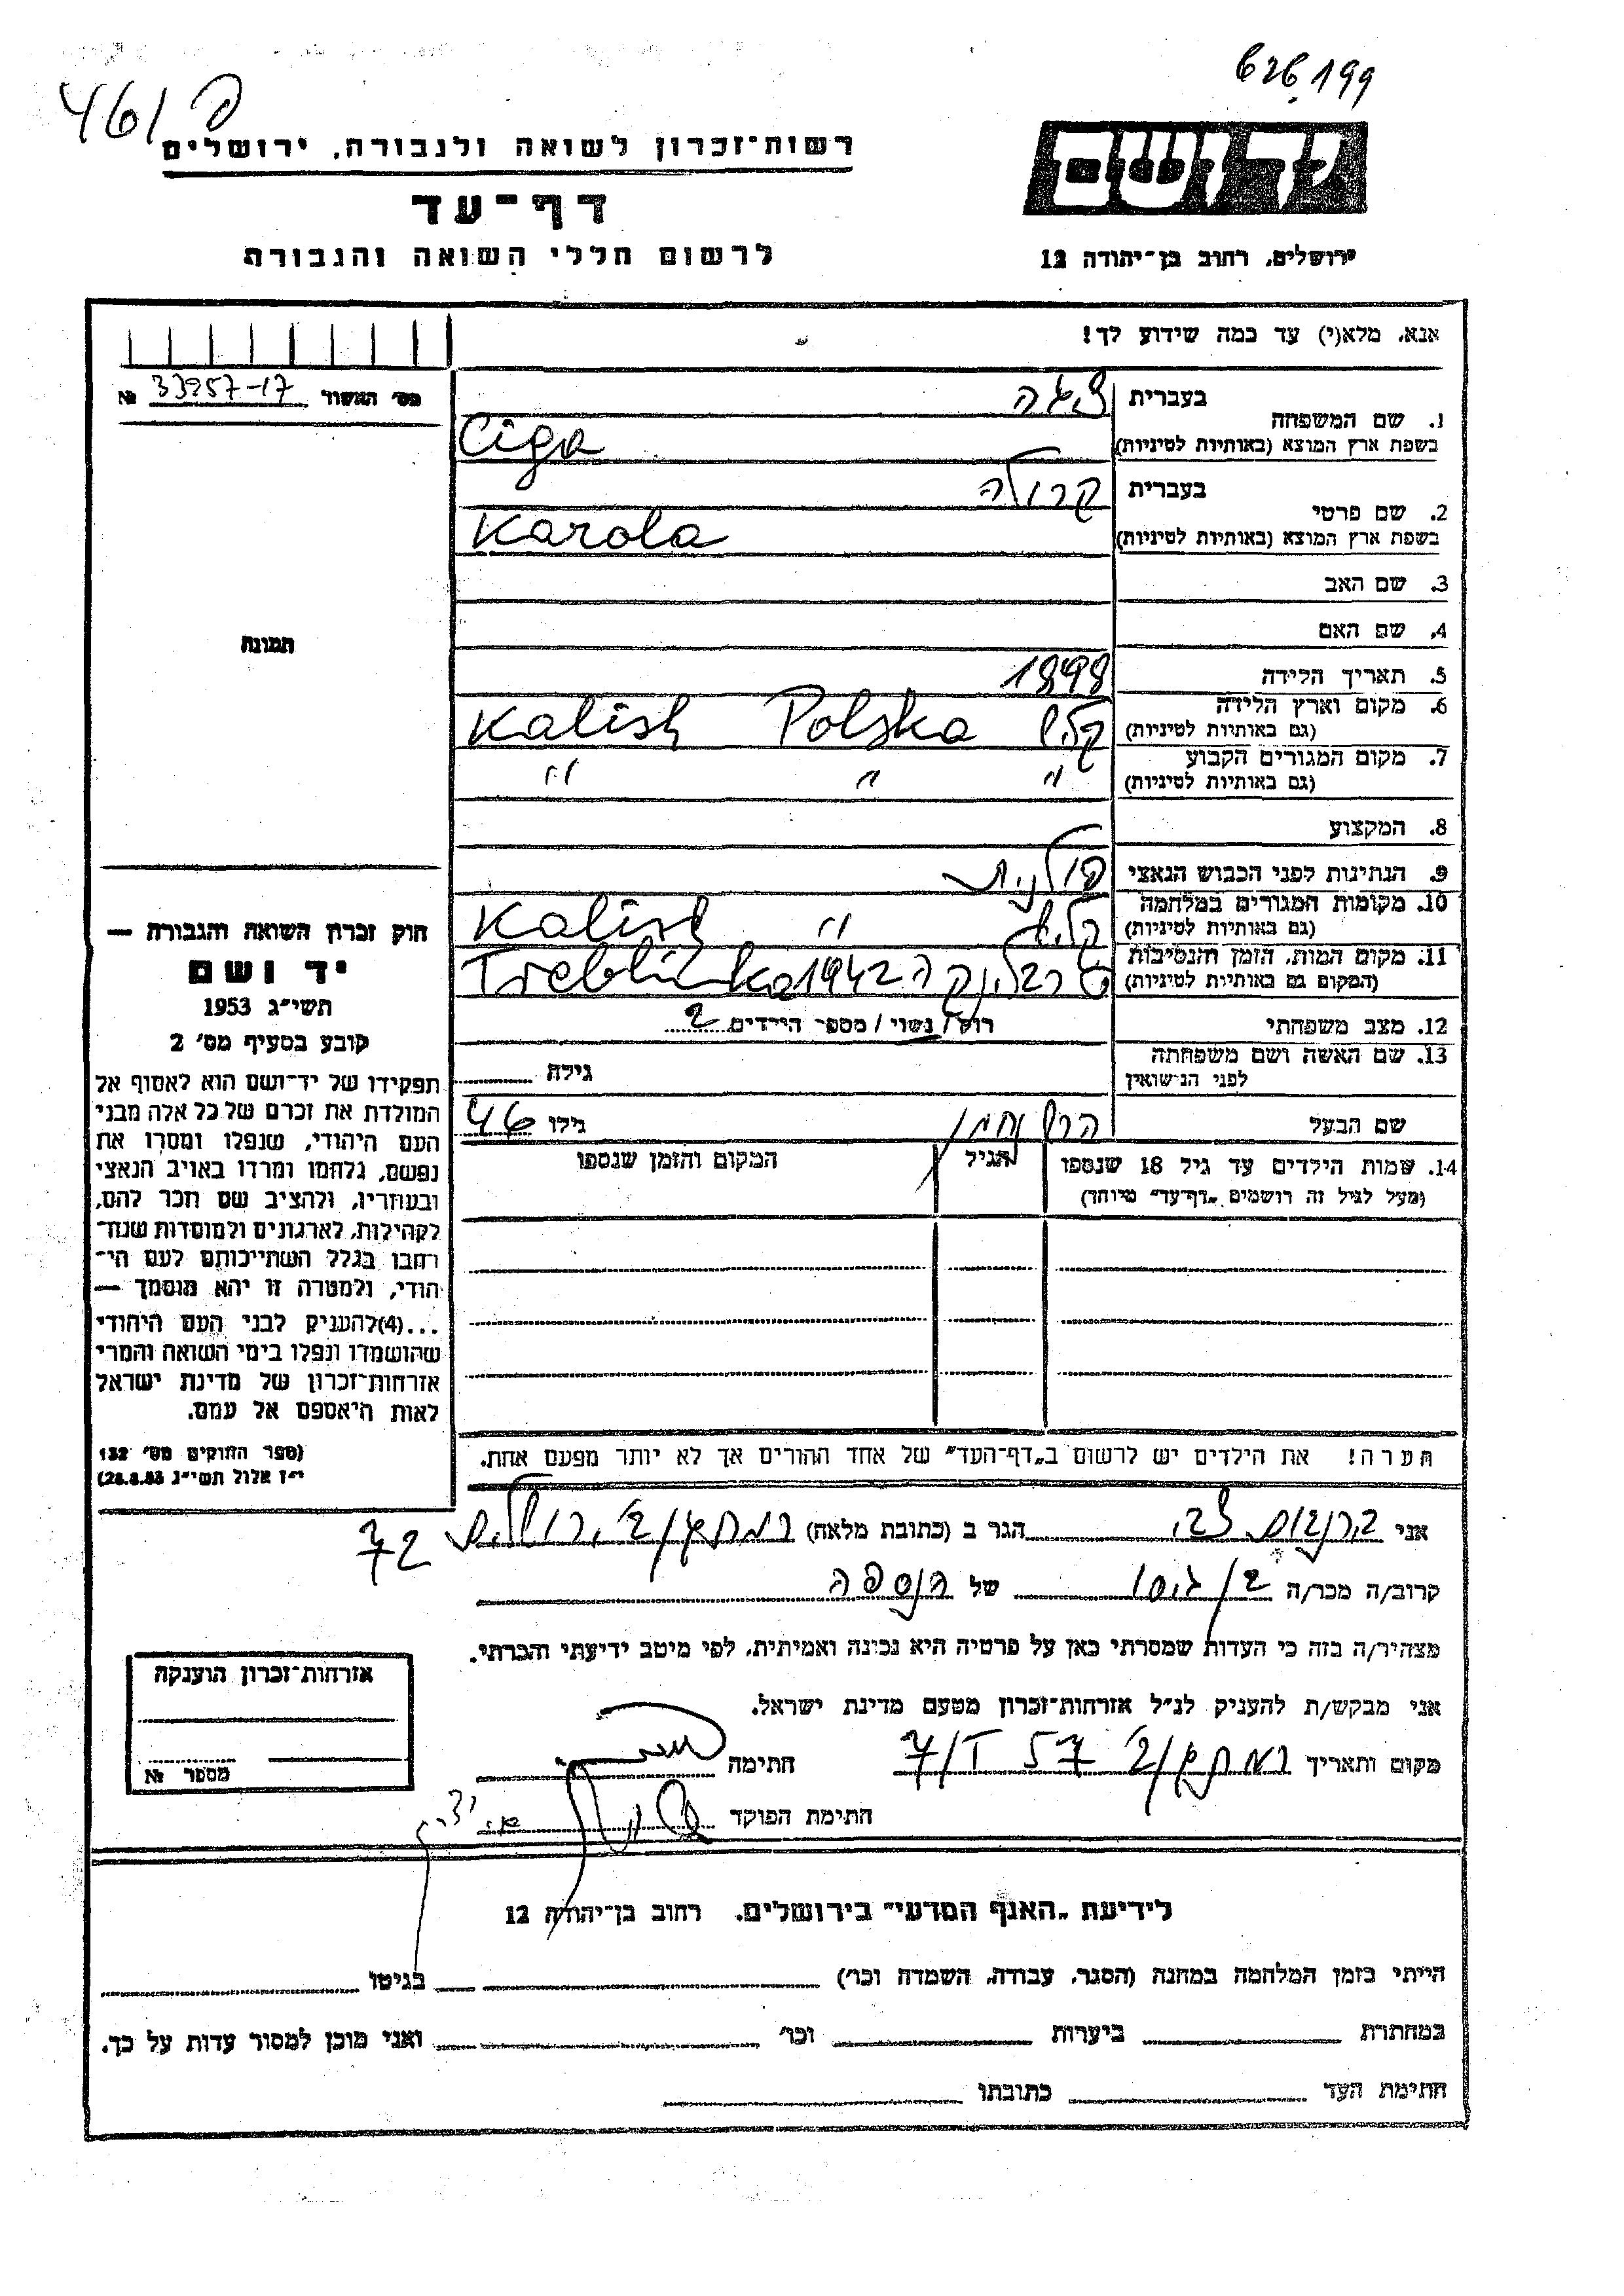 626199
461 פ
רשות־זכרון לשואה ולגבורה, ירושלים
דף־עד
לרשום חללי השואה והגבורה
יד ושם
ירושלים, רחוב בן־יהודה 12
אנא, מלא(י) עד כמה שידוע לך!
מס' האשור № 33957-17
תמונה
1. שם המשפחה
בעברית ציגה
בשפת ארץ המוצא (באותיות לטיניות) Ciga
2. שם פרטי
בעברית קרולה
בשפת ארץ המוצא (באותיות לטיניות) Karola
3. שם האב
4. שם האם
5. תאריך הלידה 1898
6. מקום וארץ הלידה
(גם באותיות לטיניות) קליש Polska Kalish
7. מקום המגורים הקבוע " " "
(גם באותיות לטיניות)
8. המקצוע
9. הנתינות לפני הכבוש הנאצי פולנית
10. מקומות המגורים במלחמה
(גם באותיות לטיניות) קליש " Kalish
11. מקום המות, הזמן והנסיבות
(המקום גם באותיות לטיניות) טרבלינקה 1942 Treblinka
12. מצב משפחתי רווק / נשוי / מספר הילדים 2
13. שם האשה ושם משפחתה
לפני הנישואין גילה
שם הבעל גילו 46
14. שמות הילדים עד גיל 18 שנספו הגיל המקום והזמן שנספו
(מעל לגיל זה רושמים "דף־עד" מיוחד)
הערה! את הילדים יש לרשום ב"דף־העד" של אחד ההורים אך לא יותר מפעם אחת.
חוק זכרון השואה והגבורה —
יד ושם
תשי"ג 1953
קובע בסעיף מס' 2
תפקידו של יד־ושם הוא לאסוף אל
המולדת את זכרם של כל אלה מבני
העם היהודי, שנפלו ומסרו את
נפשם, נלחמו ומרדו באויב הנאצי
ובעוזריו, ולהציב שם וזכר להם,
לקהילות, לארגונים ולמוסדות שנח־
רבו בגלל השתייכותם לעם הי־
הודי, ולמטרה זו יהא מוסמך —
...(4)להעניק לבני העם היהודי
שהושמדו ונפלו בימי השואה והמרי
אזרחות־זכרון של מדינת ישראל
לאות היאספם אל עמם.
(ספר החוקים מס' 132
י"ז אלול תשי"ג 28.8.53)
אני צבי הגר ב (כתובת מלאה) רמת גן
72
קרוב/ה מכר/ה גיסו של הנספה
מצהיר/ה בזה כי העדות שמסרתי כאן על פרטיה היא נכונה ואמיתית, לפי מיטב ידיעתי והכרתי.
אני מבקש/ת להעניק לנ"ל אזרחות־זכרון מטעם מדינת ישראל.
מקום ותאריך רמת גן 7/I 57 חתימה
חתימת הפוקד
אזרחות־זכרון הוענקה
מספר №
לידיעת "האגף המדעי" בירושלים, רחוב בן־יהודה 12
הייתי בזמן המלחמה במחנה (הסגר, עבודה, השמדה וכו') בגיטו
במחתרת ביערות וכו' ואני מוכן למסור עדות על כך.
חתימת העד כתובתו